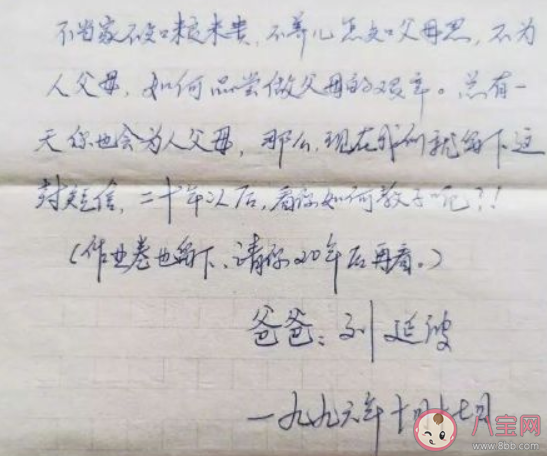 不当家不知柴米贵,不养儿怎知父母恩,不为
人父母,如何品尝做父母的艰辛。总有一
天你也会为人父母,那么,现在我们就留下这
封短信,二十年以后,看你如何教子呢?!
(作业卷也留下,请你20年后再看。)
爸爸:刘延波
一九九六年十月十七日
八宝网
www.8bb.com